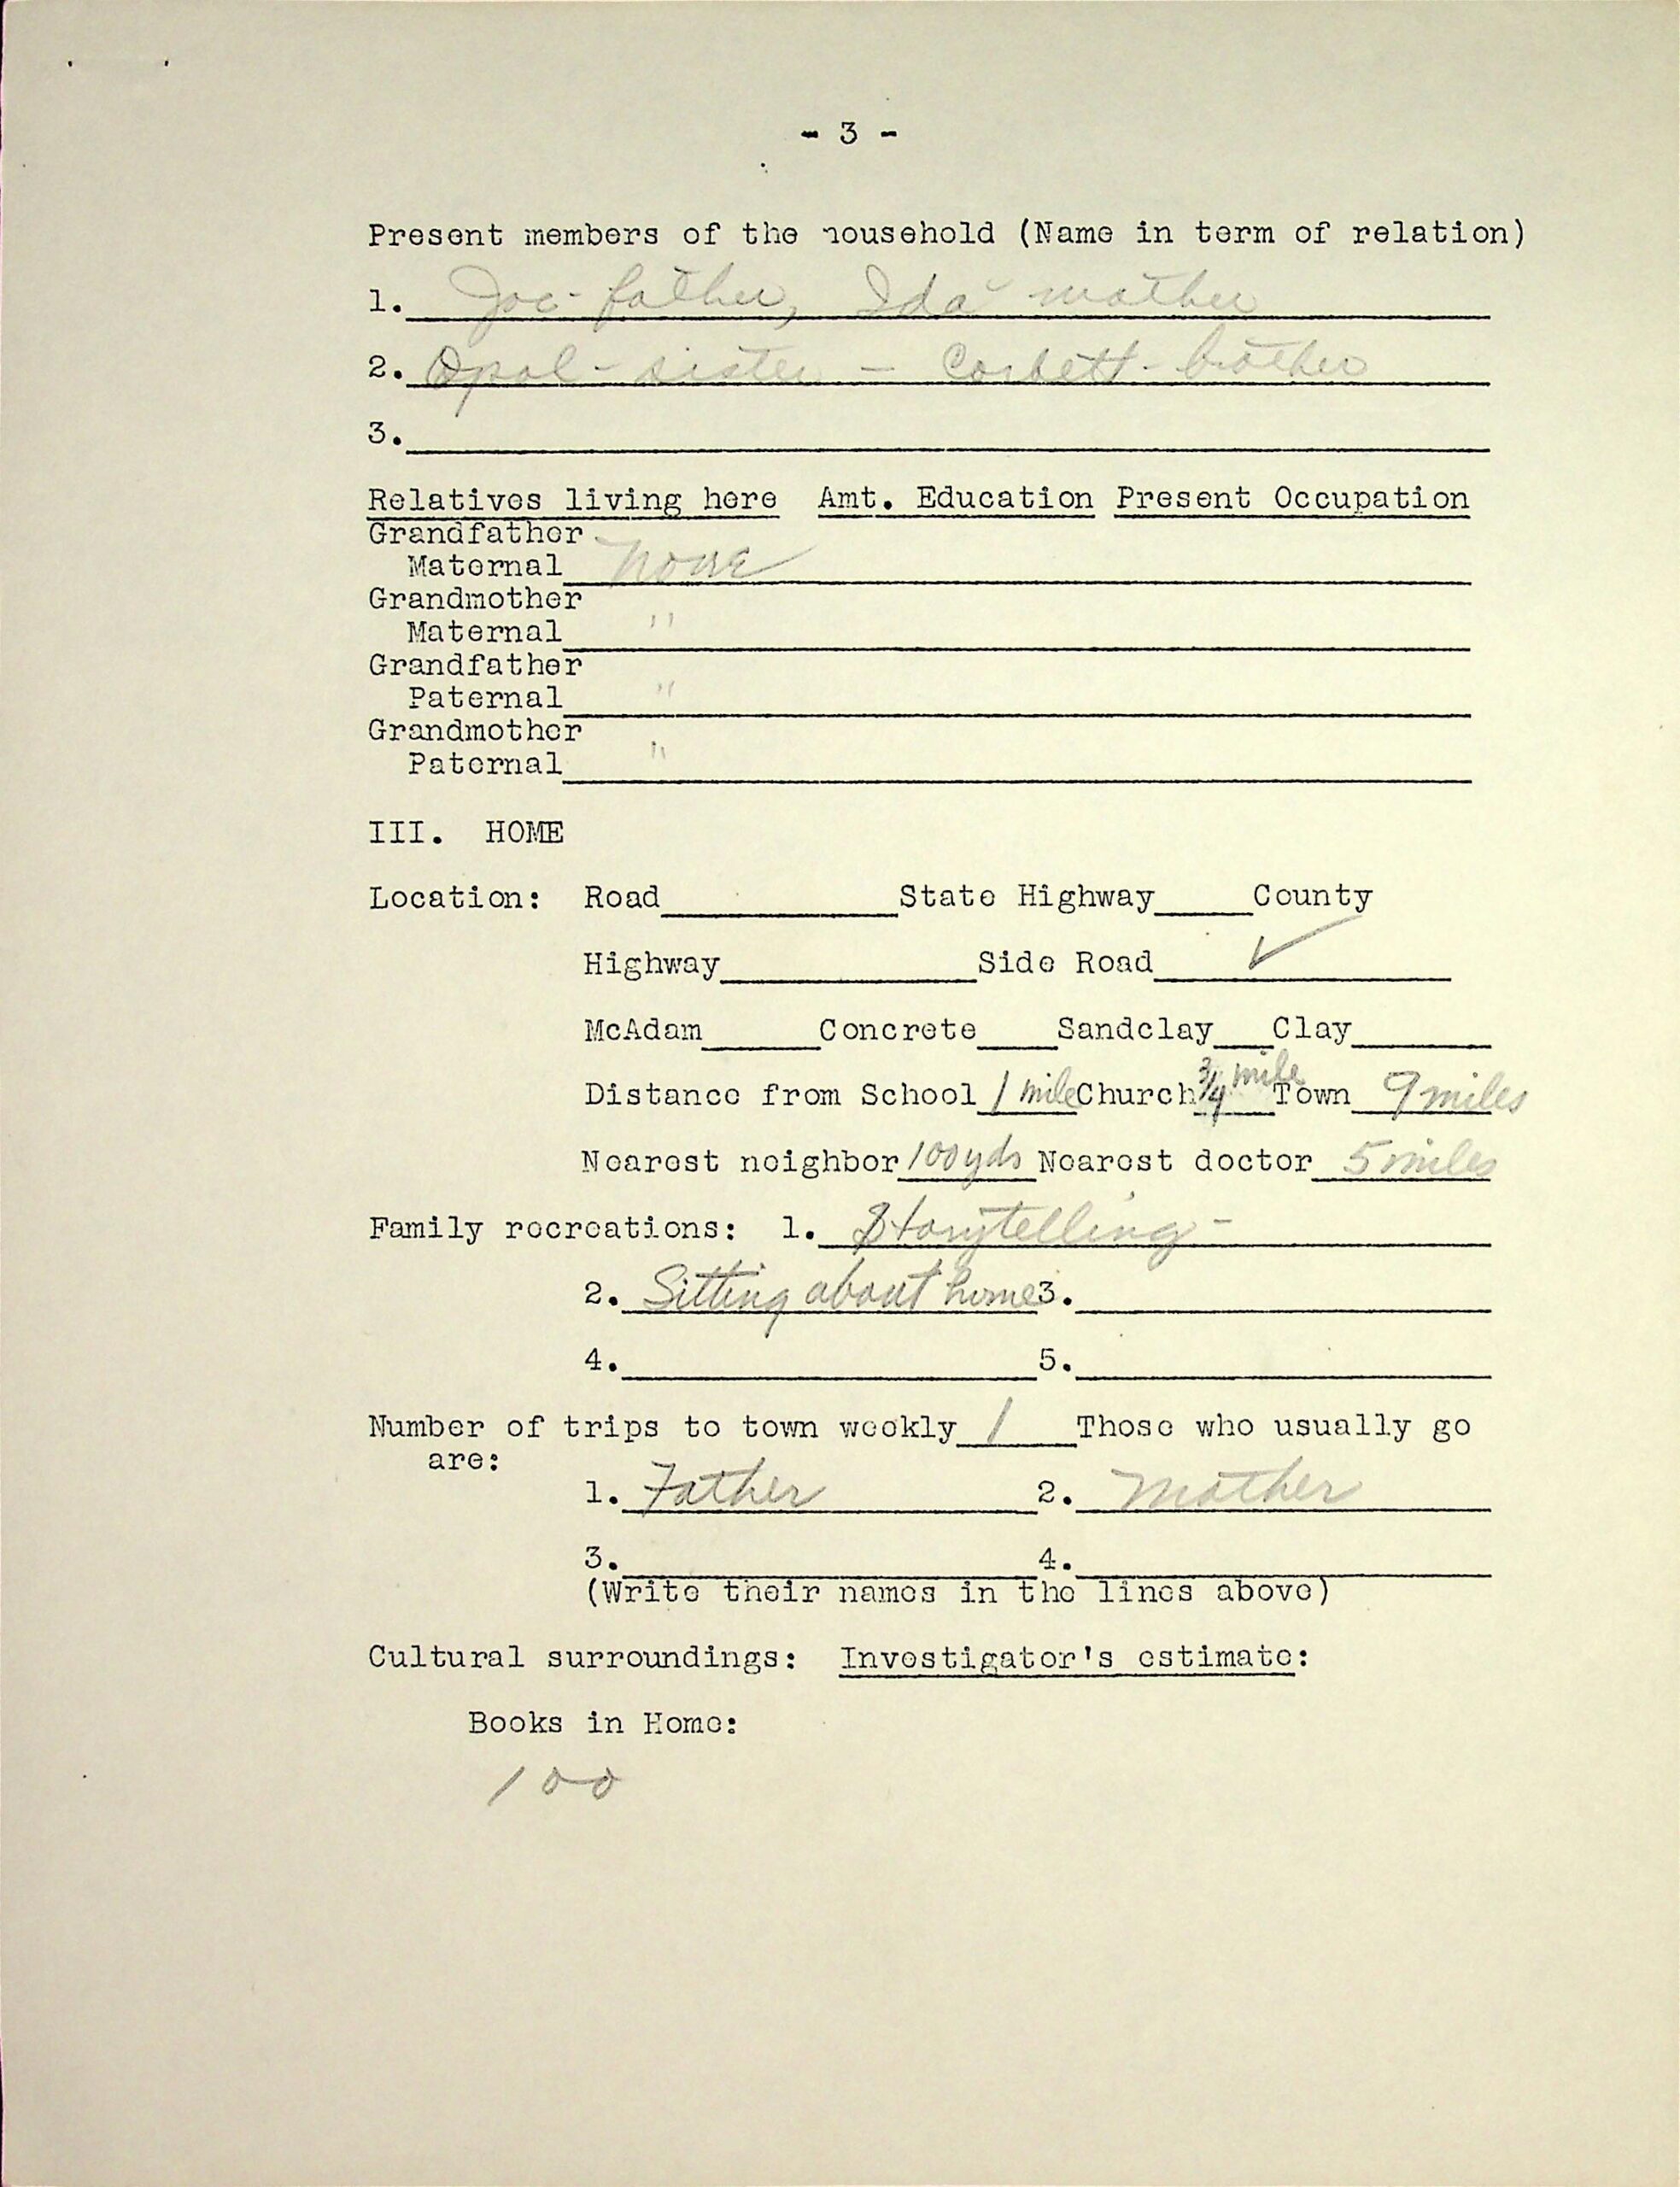 - 3 -
Present members of the household (Name in term of relation)
1. Joe - father, Ida - mother
2. Opal - sister - Corbett - brother
3.
Relatives living here Amt. Education Present Occupation
Grandfather
Maternal none
Grandmother
Maternal "
Grandfather
Paternal "
Grandmother
Paternal "
III. HOME
Location: Road State Highway County
Highway Side Road ✓
McAdam Concrete Sandclay Clay
Distance from School 1 mile Church 3/4 mile Town 9 miles
Nearest neighbor 100 yds Nearest doctor 5 miles
Family recreations: 1. Storytelling -
2. Sitting about home 3.
4. 5.
Number of trips to town weekly 1 Those who usually go
are:
1. Father 2. Mother
3. 4.
(Write their names in the lines above)
Cultural surroundings: Investigator's estimate:
Books in Home:
100